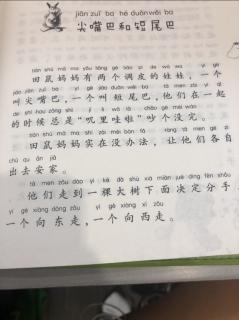 jiān zuǐ ba hé duǎn wěi ba
尖嘴巴和短尾巴
tián shǔ mā ma yǒu liǎng gè tiáo pí de wá wa yí gè
田鼠妈妈有两个调皮的娃娃，一个
jiào jiān zuǐ ba yí gè jiào duǎn wěi ba tā men zài yì qǐ
叫尖嘴巴，一个叫短尾巴，他们在一起
de shí hou zǒng shì jī li wā lā chǎo gè méi wán
的时候总是“叽里哇啦”吵个没完。
tián shǔ mā ma shí zài méi bàn fǎ ràng tā men gè zì
田鼠妈妈实在没办法，让他们各自
chū qù ān jiā
出去安家。
tā men zǒu dào yì kē dà shù xià miàn jué dìng fēn shǒu
他们走到一棵大树下面决定分手
yí gè xiàng dōng zǒu yí gè xiàng xī zǒu
一个向东走，一个向西走。